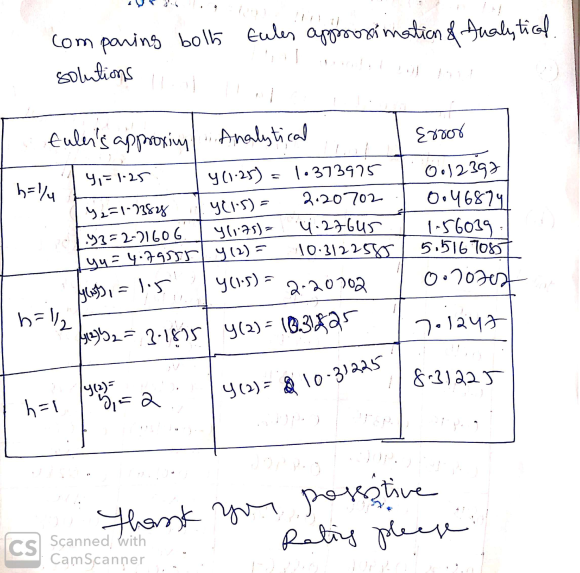 Comparing both Euler approximation & Analytical
solutions
Euler's approxim Analytical Error
h=1/4 y₁=1.25 y(1.25) = 1.373975 0.12397
y₂=1.73828 y(1.5) = 2.20702 0.46874
y3=2.71606 y(1.75)= 4.27645 1.56039
y4=4.79555 y(2) = 10.3122585 5.5167085
h=1/2 y₁ = 1.5 y(1.5) = 2.20702 0.70702
y₂= 3.1875 y(2) = 7.1247
h=1 y(2)= y₁=2 y(2)= 10.31225 8.31225
Thank you possitive
Rating please
CS Scanned with
CamScanner